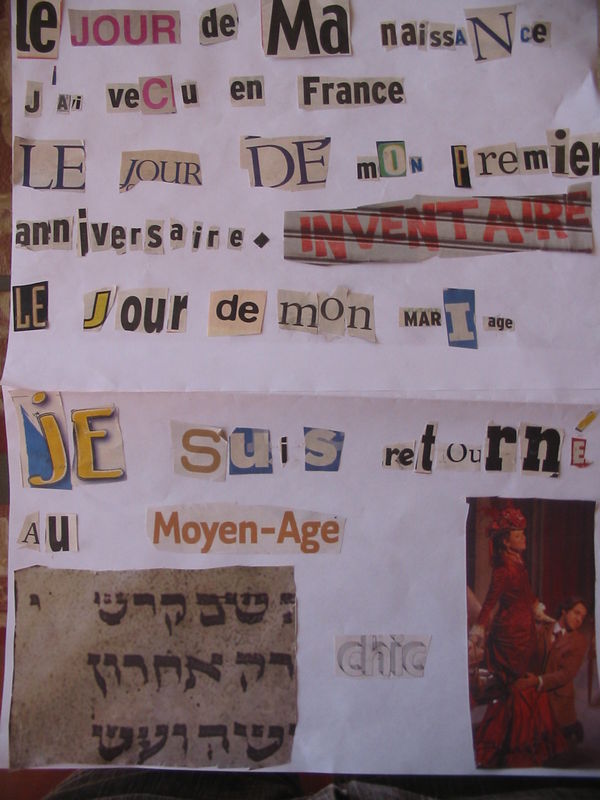 le JOUR de Ma naissANce
J'Ai véCu en France
LE JOUR DE mON Premier
anniversaire. INVENTAIRE
LE Jour de mon MARIage
jE Suis retOurnÉ
Au Moyen-Age
שבקרש
רק אחרון
chic